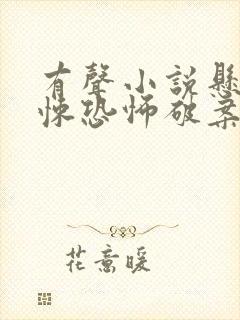 有聲小說懸
悚恐怖破案
花意暖